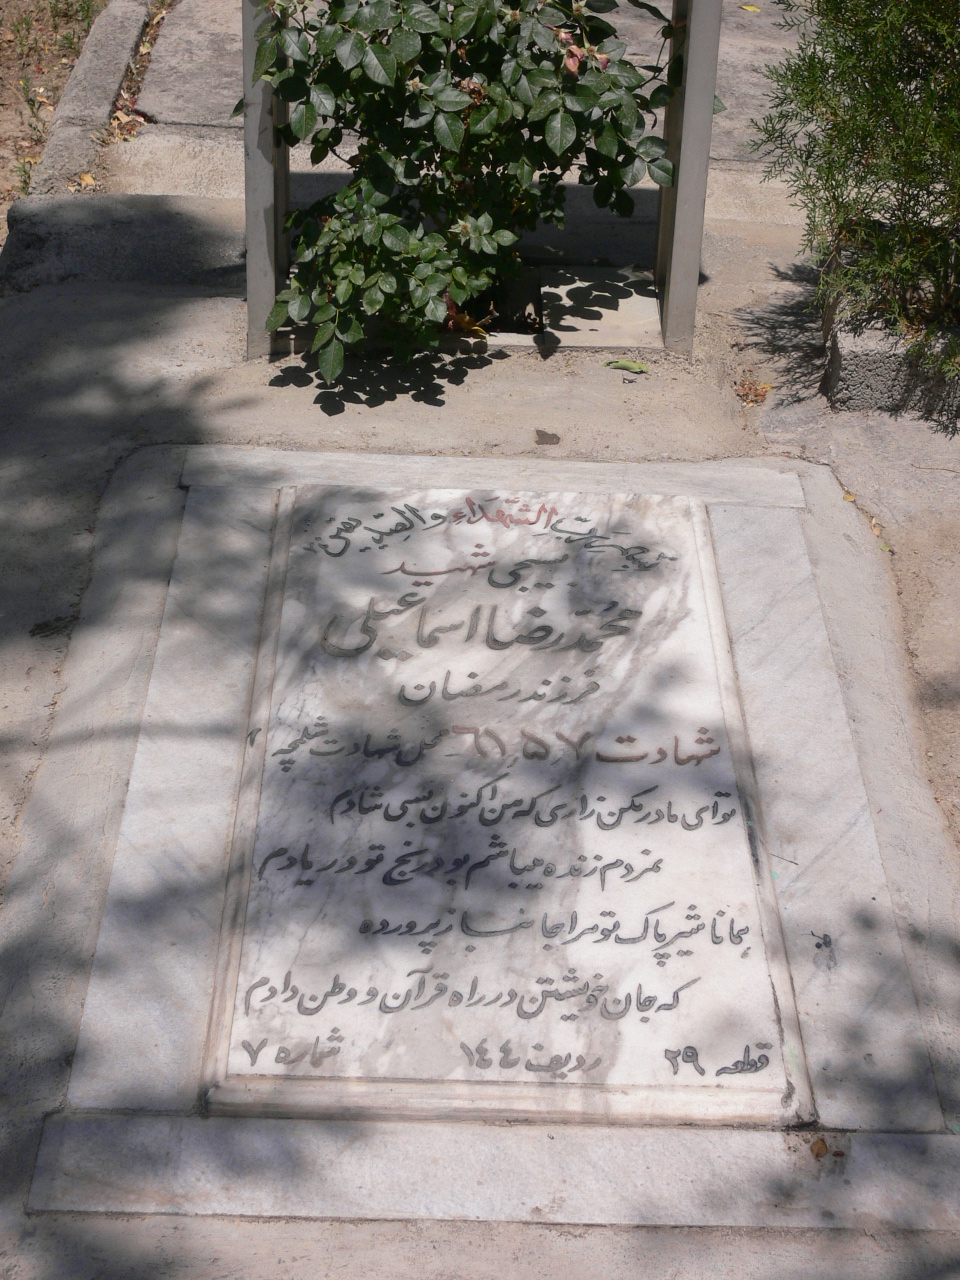 بسم رب الشهداء والصدیقین
بسیجی شهید
محمدرضا اسماعیلی
فرزند رمضان
شهادت ۶۱٫۵٫۷ محل شهادت شلمچه
تو ای مادر مکن زاری که من اکنون بسی شادم
نمردم زنده میباشم بود رنج تو در یادم
همانا شیر پاک تو مرا جانباز پرورده
که جان خویشتن در راه قرآن و وطن دادم
قطعه ۲۹ ردیف ۱۴۴ شماره ۷